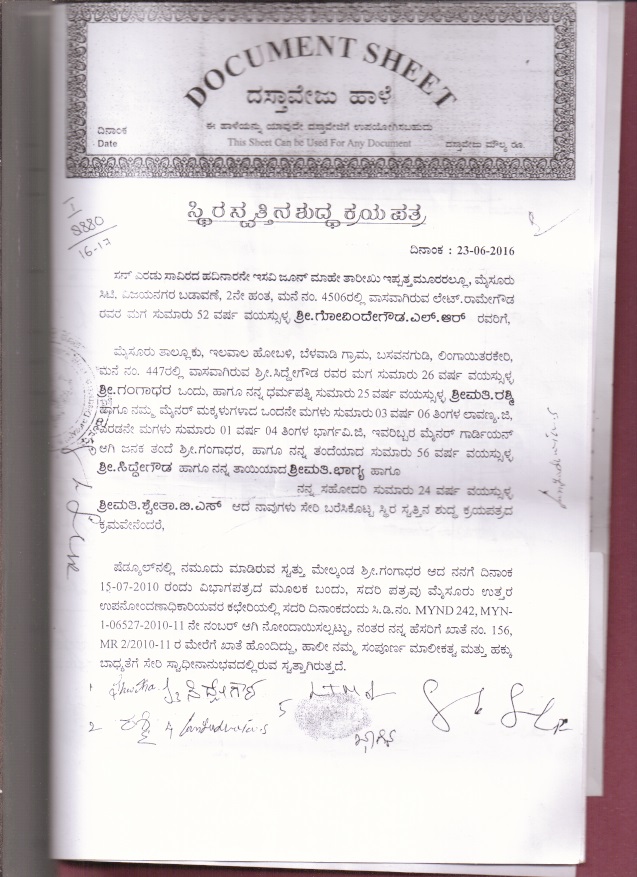 DOCUMENT SHEET
ದಸ್ತಾವೇಜು ಹಾಳೆ
ದಿನಾಂಕ ಈ ಹಾಳೆಯನ್ನು ಯಾವುದೇ ದಸ್ತಾವೇಜಿಗೆ ಉಪಯೋಗಿಸಬಹುದು
Date This Sheet Can be Used For Any Document ದಸ್ತಾವೇಜು ಮೌಲ್ಯ ರೂ.
I
8880
16-17
ಸ್ಥಿರ ಸ್ವತ್ತಿನ ಶುದ್ಧ ಕ್ರಯ ಪತ್ರ
ದಿನಾಂಕ : 23-06-2016
ಸನ್ ಎರಡು ಸಾವಿರದ ಹದಿನಾರನೇ ಇಸವಿ ಜೂನ್ ಮಾಹೇ ತಾರೀಖು ಇಪ್ಪತ್ತಮೂರರಲ್ಲೂ, ಮೈಸೂರು
ಸಿಟಿ, ವಿಜಯನಗರ ಬಡಾವಣೆ, 2ನೇ ಹಂತ, ಮನೆ ನಂ. 4506ರಲ್ಲಿ ವಾಸವಾಗಿರುವ ಲೇಟ್.ರಾಮೇಗೌಡ
ರವರ ಮಗ ಸುಮಾರು 52 ವರ್ಷ ವಯಸ್ಸುಳ್ಳ ಶ್ರೀ.ಗೋವಿಂದೇಗೌಡ.ಎಲ್.ಆರ್ ರವರಿಗೆ,
ಮೈಸೂರು ತಾಲ್ಲೂಕು, ಇಲವಾಲ ಹೋಬಳಿ, ಬೆಳವಾಡಿ ಗ್ರಾಮ, ಬಸವನಗುಡಿ, ಲಿಂಗಾಯಿತರಕೇರಿ,
ಮನೆ ನಂ. 447ರಲ್ಲಿ ವಾಸವಾಗಿರುವ ಶ್ರೀ.ಸಿದ್ದೇಗೌಡ ರವರ ಮಗ ಸುಮಾರು 26 ವರ್ಷ ವಯಸ್ಸುಳ್ಳ
ಶ್ರೀ.ಗಂಗಾಧರ ಒಂದು, ಹಾಗೂ ನನ್ನ ಧರ್ಮಪತ್ನಿ ಸುಮಾರು 25 ವರ್ಷ ವಯಸ್ಸುಳ್ಳ ಶ್ರೀಮತಿ.ರಶ್ಮಿ
ಹಾಗೂ ನಮ್ಮ ಮೈನರ್ ಮಕ್ಕಳುಗಳಾದ ಒಂದನೇ ಮಗಳು ಸುಮಾರು 03 ವರ್ಷ 06 ತಿಂಗಳ ಲಾವಣ್ಯ.ಜಿ,
ಎರಡನೇ ಮಗಳು ಸುಮಾರು 01 ವರ್ಷ 04 ತಿಂಗಳ ಭಾರ್ಗವಿ.ಜಿ, ಇವರಿಬ್ಬರ ಮೈನರ್ ಗಾರ್ಡಿಯನ್
ಆಗಿ ಜನಕ ತಂದೆ ಶ್ರೀ.ಗಂಗಾಧರ, ಹಾಗೂ ನನ್ನ ತಂದೆಯಾದ ಸುಮಾರು 56 ವರ್ಷ ವಯಸ್ಸುಳ್ಳ
ಶ್ರೀ.ಸಿದ್ದೇಗೌಡ ಹಾಗೂ ನನ್ನ ತಾಯಿಯಾದ ಶ್ರೀಮತಿ.ಭಾಗ್ಯ ಹಾಗೂ
ನನ್ನ ಸಹೋದರಿ ಸುಮಾರು 24 ವರ್ಷ ವಯಸ್ಸುಳ್ಳ
ಶ್ರೀಮತಿ.ಶ್ವೇತಾ.ಬಿ.ಎಸ್ ಆದ ನಾವುಗಳು ಸೇರಿ ಬರೆಸಿಕೊಟ್ಟ ಸ್ಥಿರ ಸ್ವತ್ತಿನ ಶುದ್ಧ ಕ್ರಯಪತ್ರದ
ಕ್ರಮವೇನೆಂದರೆ,
ಷೆಡ್ಯೂಲ್‌ನಲ್ಲಿ ನಮೂದು ಮಾಡಿರುವ ಸ್ವತ್ತು ಮೇಲ್ಕಂಡ ಶ್ರೀ.ಗಂಗಾಧರ ಆದ ನನಗೆ ದಿನಾಂಕ
15-07-2010 ರಂದು ವಿಭಾಗಪತ್ರದ ಮೂಲಕ ಬಂದು, ಸದರಿ ಪತ್ರವು ಮೈಸೂರು ಉತ್ತರ
ಉಪನೋಂದಣಾಧಿಕಾರಿಯವರ ಕಛೇರಿಯಲ್ಲಿ ಸದರಿ ದಿನಾಂಕದಂದು ಸಿ.ಡಿ.ನಂ. MYND 242, MYN-
1-06527-2010-11 ನೇ ನಂಬರ್ ಆಗಿ ನೋಂದಾಯಿಸಲ್ಪಟ್ಟು, ನಂತರ ನನ್ನ ಹೆಸರಿಗೆ ಖಾತೆ ನಂ. 156,
MR 2/2010-11 ರ ಮೇರೆಗೆ ಖಾತೆ ಹೊಂದಿದ್ದು, ಹಾಲೀ ನಮ್ಮ ಸಂಪೂರ್ಣ ಮಾಲೀಕತ್ವ ಮತ್ತು ಹಕ್ಕು
ಬಾಧ್ಯತೆಗೆ ಸೇರಿ ಸ್ವಾಧೀನಾನುಭವದಲ್ಲಿರುವ ಸ್ವತ್ತಾಗಿರುತ್ತದೆ.
1 3 ಸಿದ್ದೇಗೌಡ 5 LTM of
2 ರಶ್ಮಿ 4
ಭಾಗ್ಯ